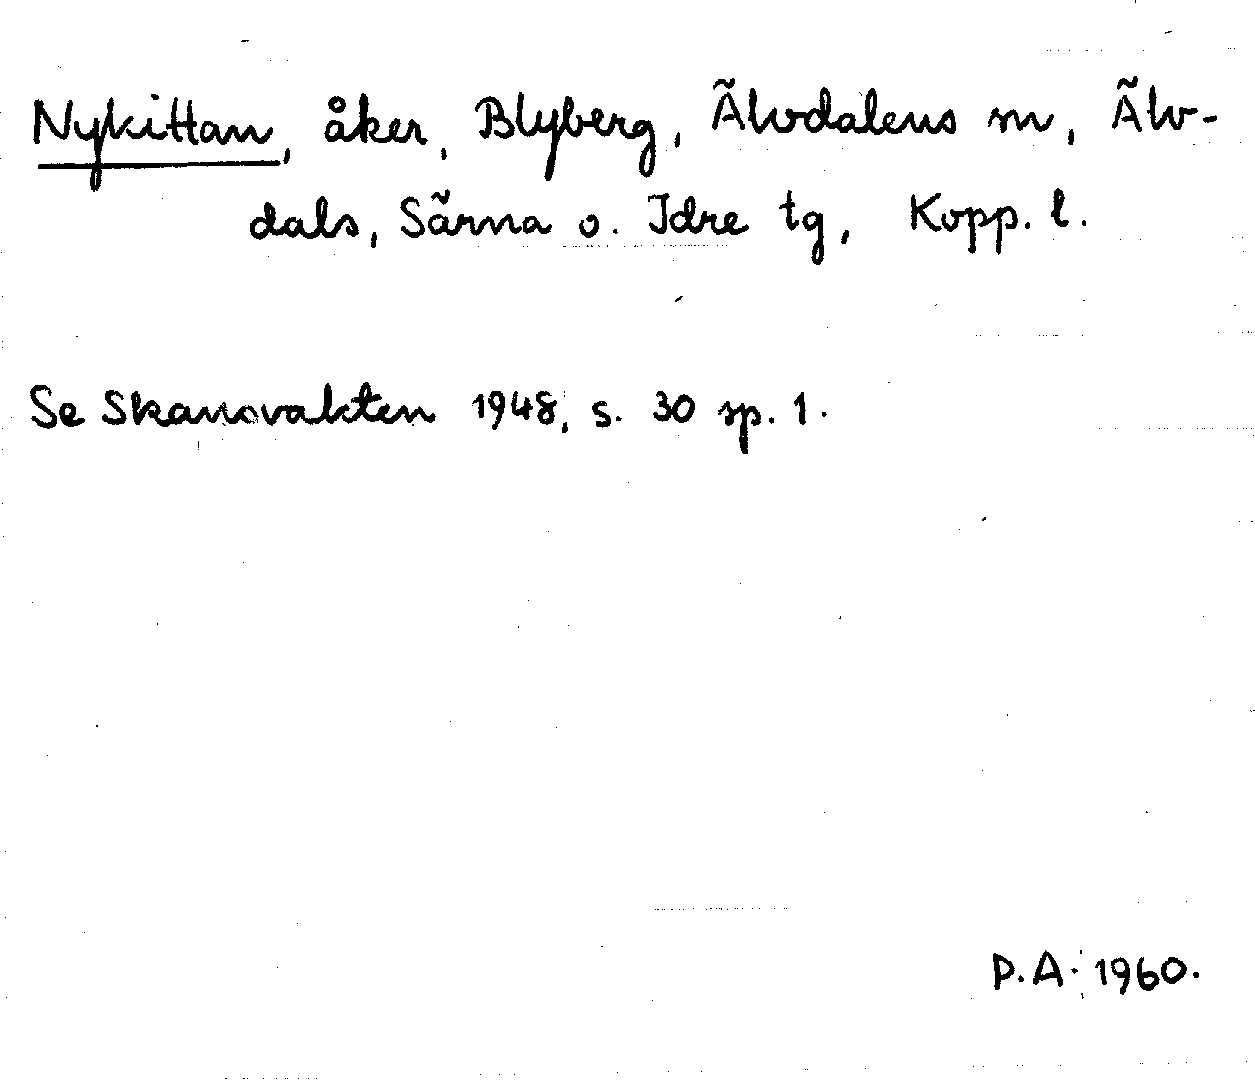 Nykittan, åker, Blyberg, Älvdalens sn, Älv-
dals, Särna o. Idre tg, Kopp. l.
Se Skansvakten 1948, s. 30 sp. 1.
P.A. 1960.